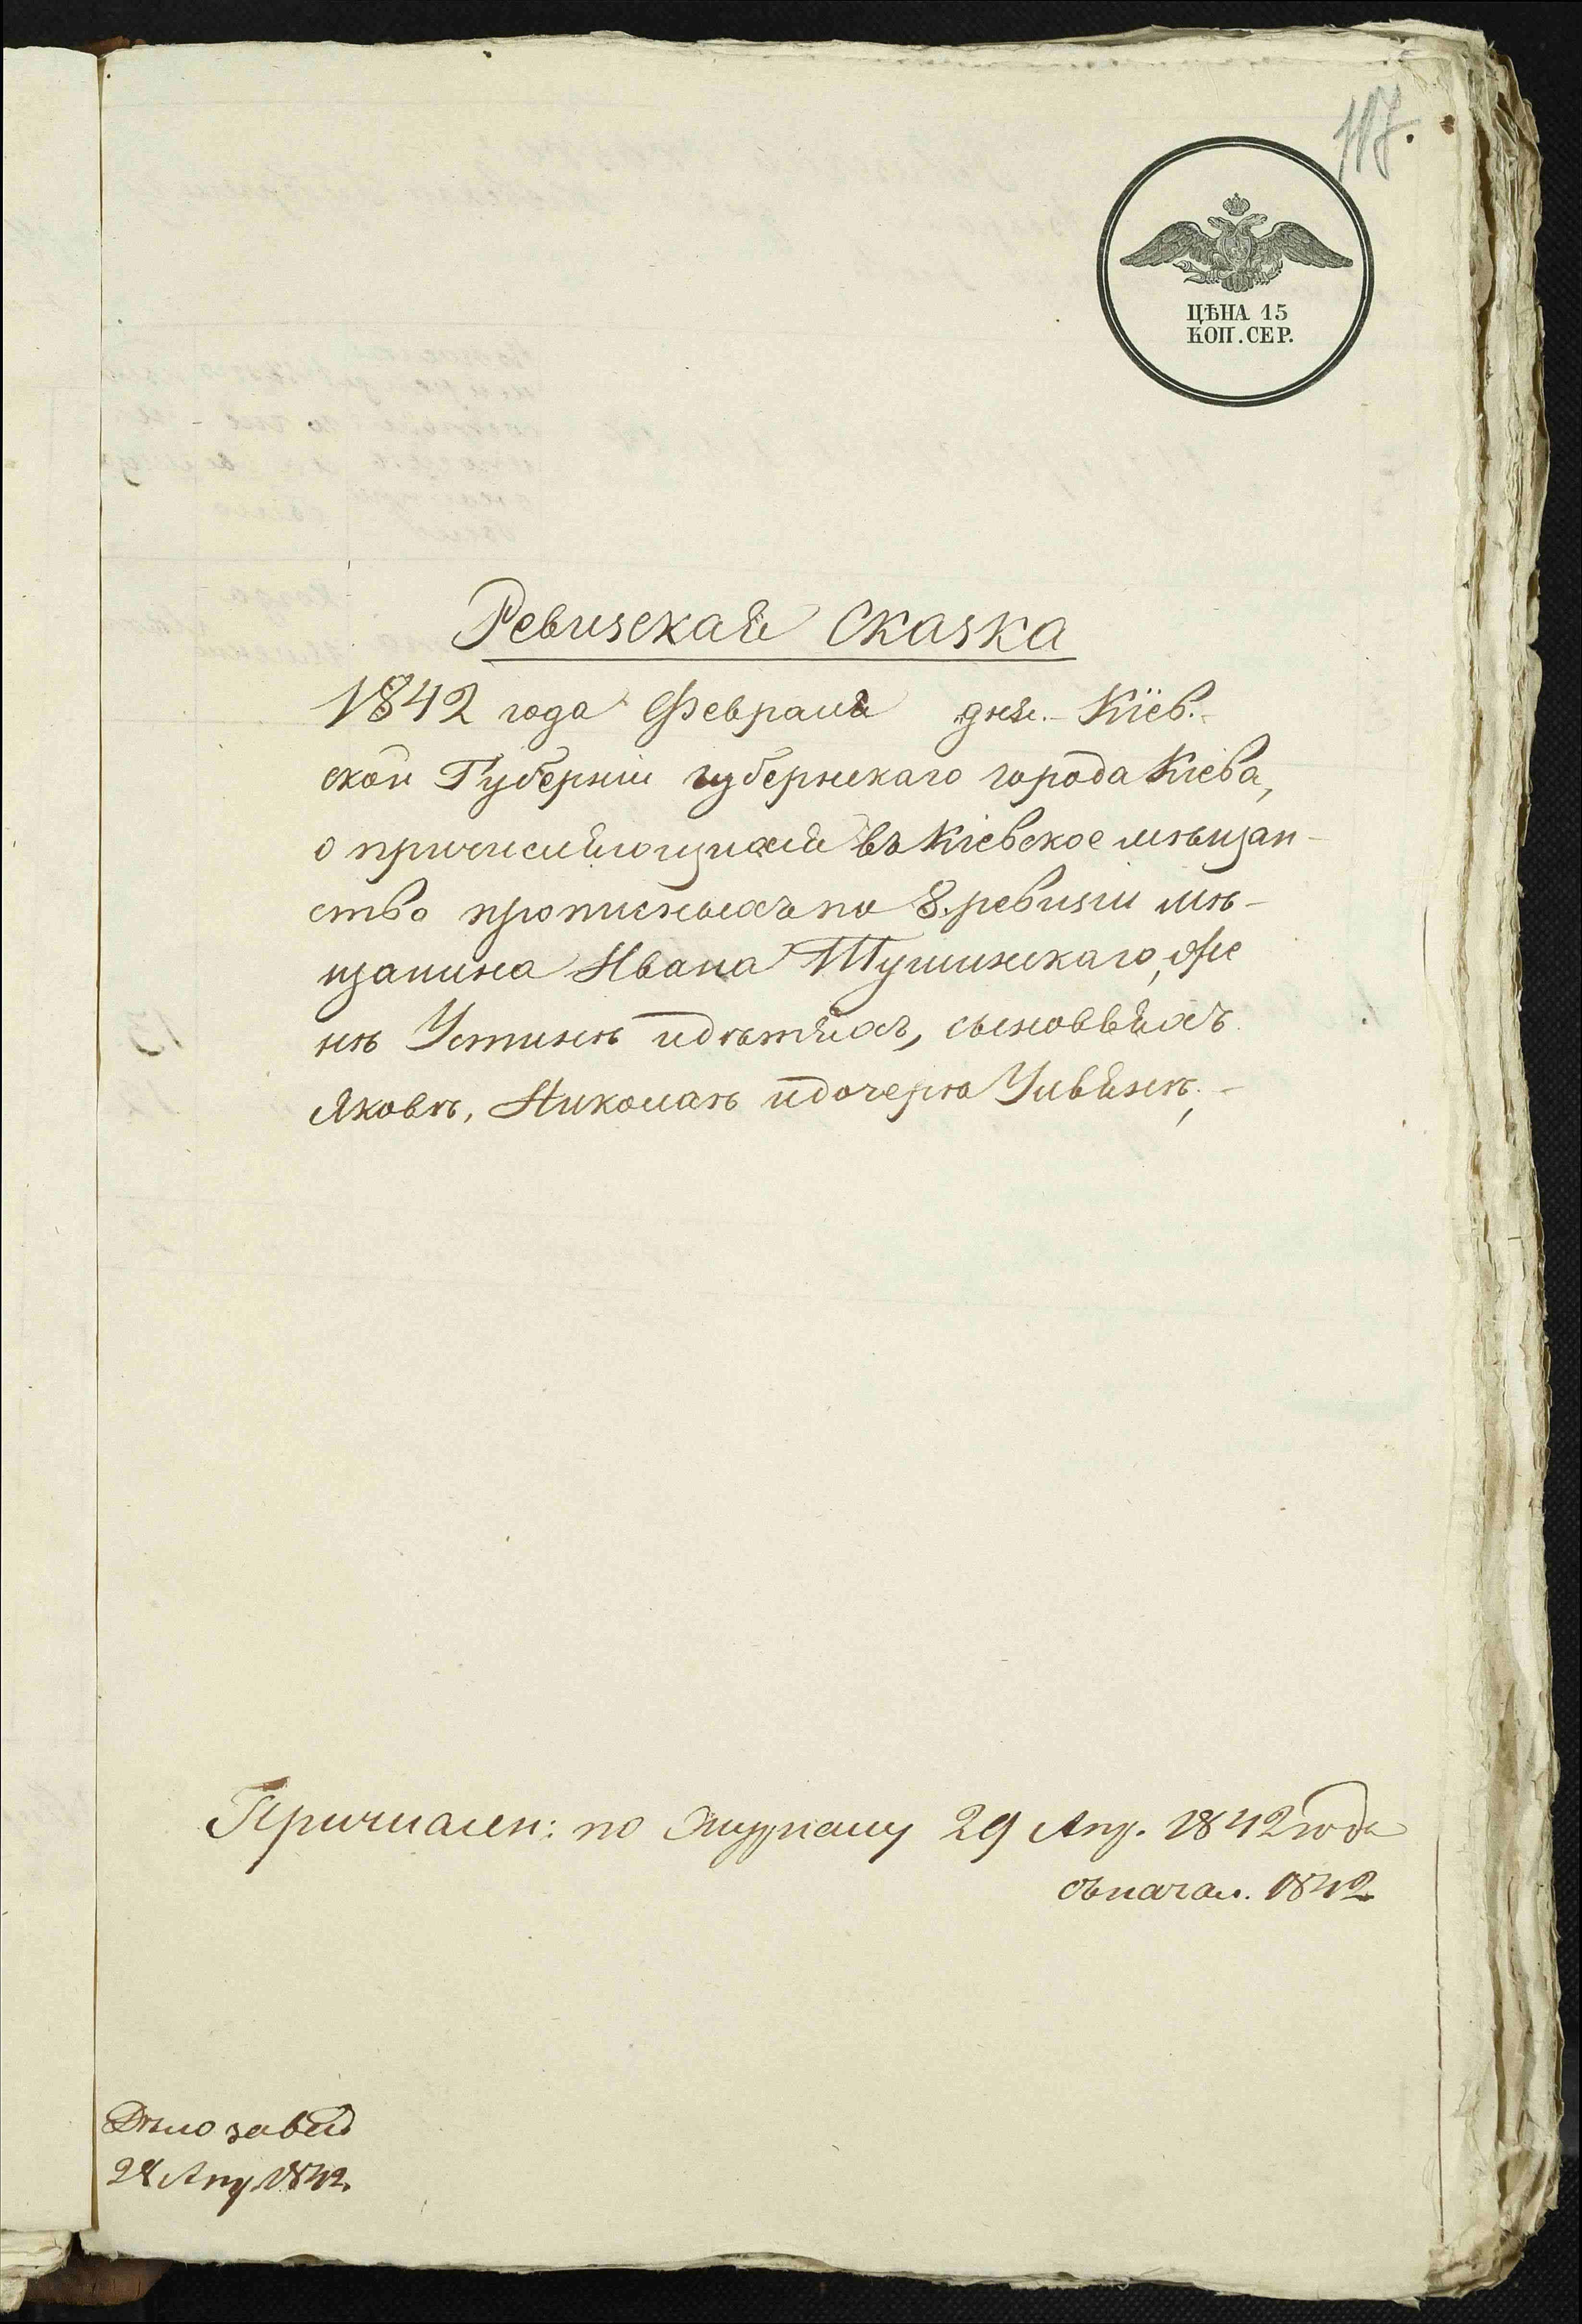 117.
ЦѢНА 15
КОП. СЕР.
Ревизская Сказка
1842 года Февраля дня.- Кіев.-
ской Губерніи губернскаго города Кіева,
о причисляющихся въ Кіевское мѣщан-
ство прописныхъ по 8. ревизіи мѣ-
щанина Ивана Тушинскаго, же
нѣ Устинѣ и дѣтяхъ, сыновьяхъ
Яковѣ, Николаѣ и дочерю Ульянѣ.-
Причислен: по журналу 29 Апр. 1842 года
съ начал. 1842
Дѣло завед
28 Апр 1842.